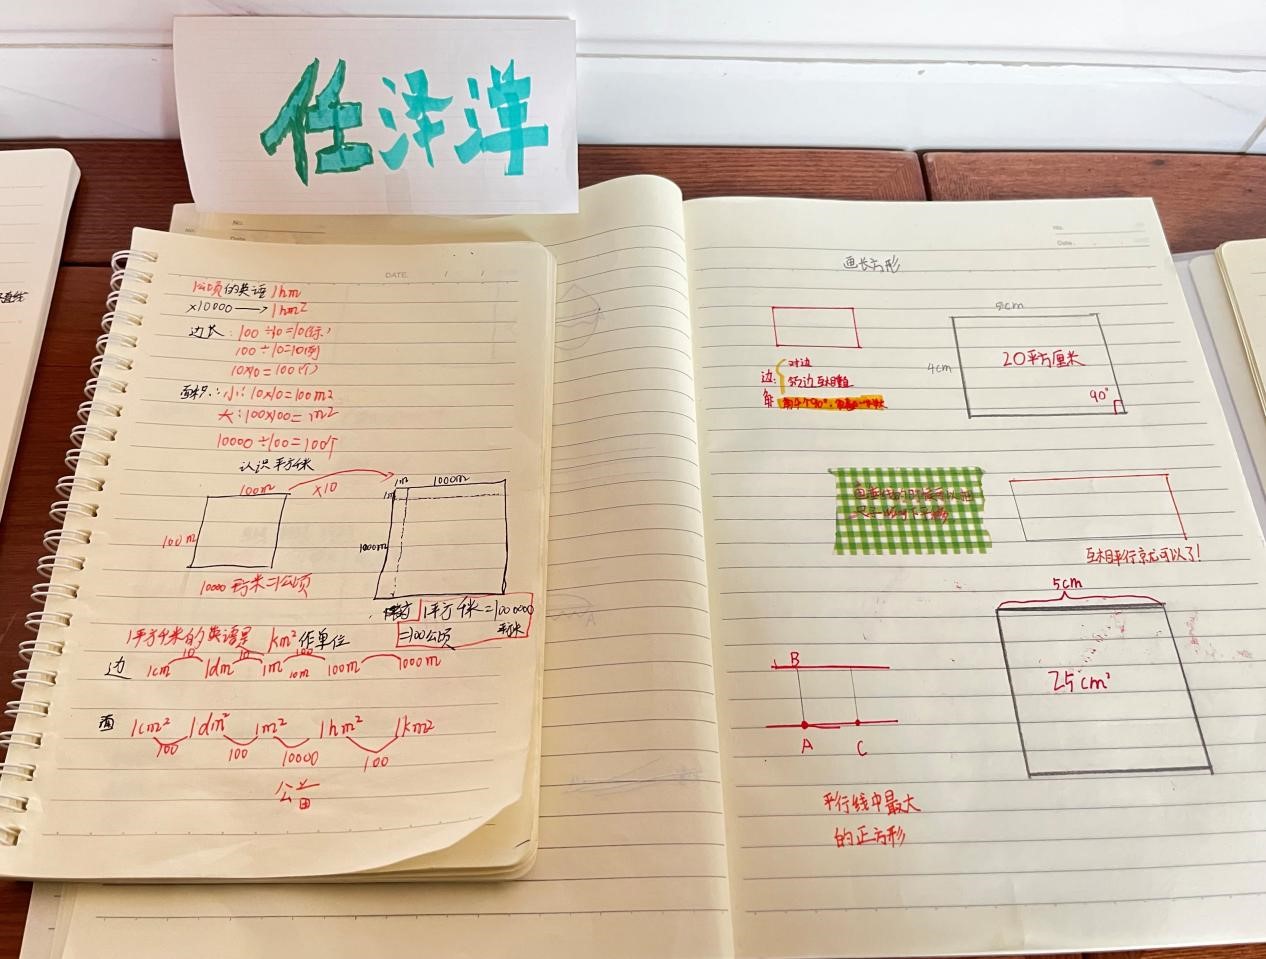 任泽洋
DATE. / /
1公顷的英语1hm
×10000⟶1hm²
边长:100÷10=10(条)
100÷10=10(列)
10×10=100(个)
面积:小:10×10=100m²
大:100×100= m²
10000÷100=100个
认识平方千米
100m
×10
1m
1000m
1m
100m
1000m
10000平方米=1公顷
1平方千米=100 0000
平方米
=100公顷
1平方千米的英语是 km²作单位
边
10
10
100
1cm 1dm 1m 10m 100m 1000m
面 1cm² 1dm² 1m² 1hm² 1km²
100 100 10000 100
公
No.
Date
No.
Date.
画长方形
5cm
4cm
20平方厘米
90°
边:
对边
角
画垂线的时候可以把
尺子
互相平行就可以了!
5cm
25cm²
B
A
C
平行线中最大
的正方形